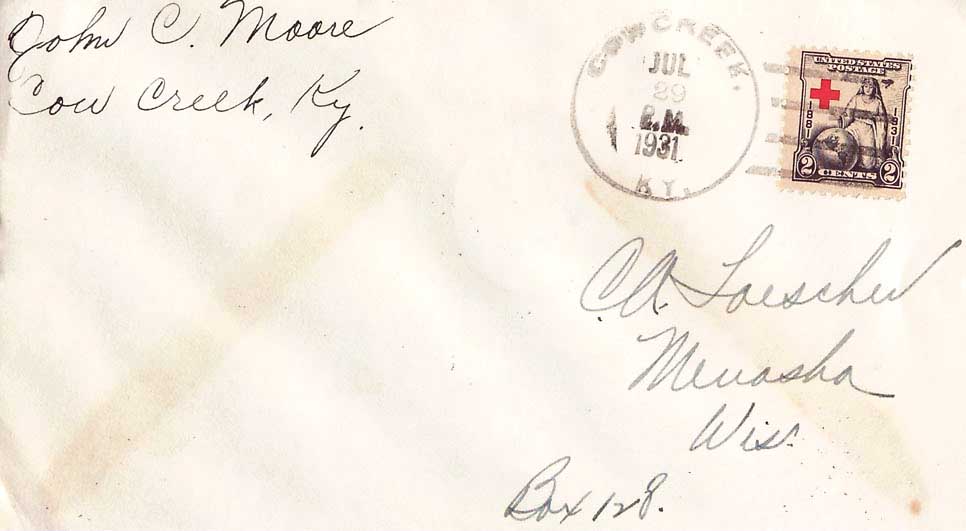 John C. Moore
Cow Creek, Ky.
COWCREEK.
JUL
29
P.M.
1931.
KY.
UNITED STATES
POSTAGE
1881
1931
2 CENTS 2
C.A. Loescher
Menasha
Wis.
Box 128.